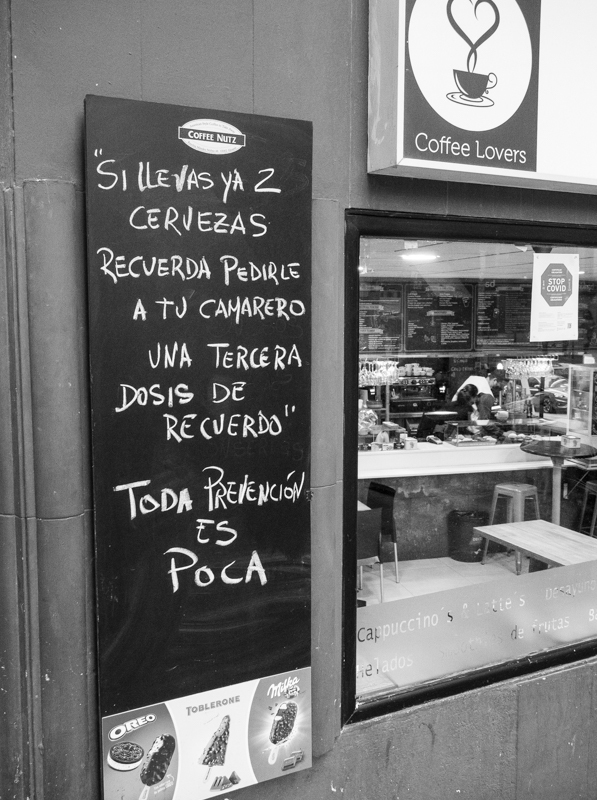 COFFEE NUTZ
"SI LLEVAS YA 2
CERVEZAS
RECUERDA PEDIRLE
A TU CAMARERO
UNA TERCERA
DOSIS DE
RECUERDO"
TODA PREVENCIÓN
ES
POCA
OREO
TOBLERONE
Milka
Coffee Lovers
STOP
COVID
Cappuccino's & Latte's
de frutas
Helados